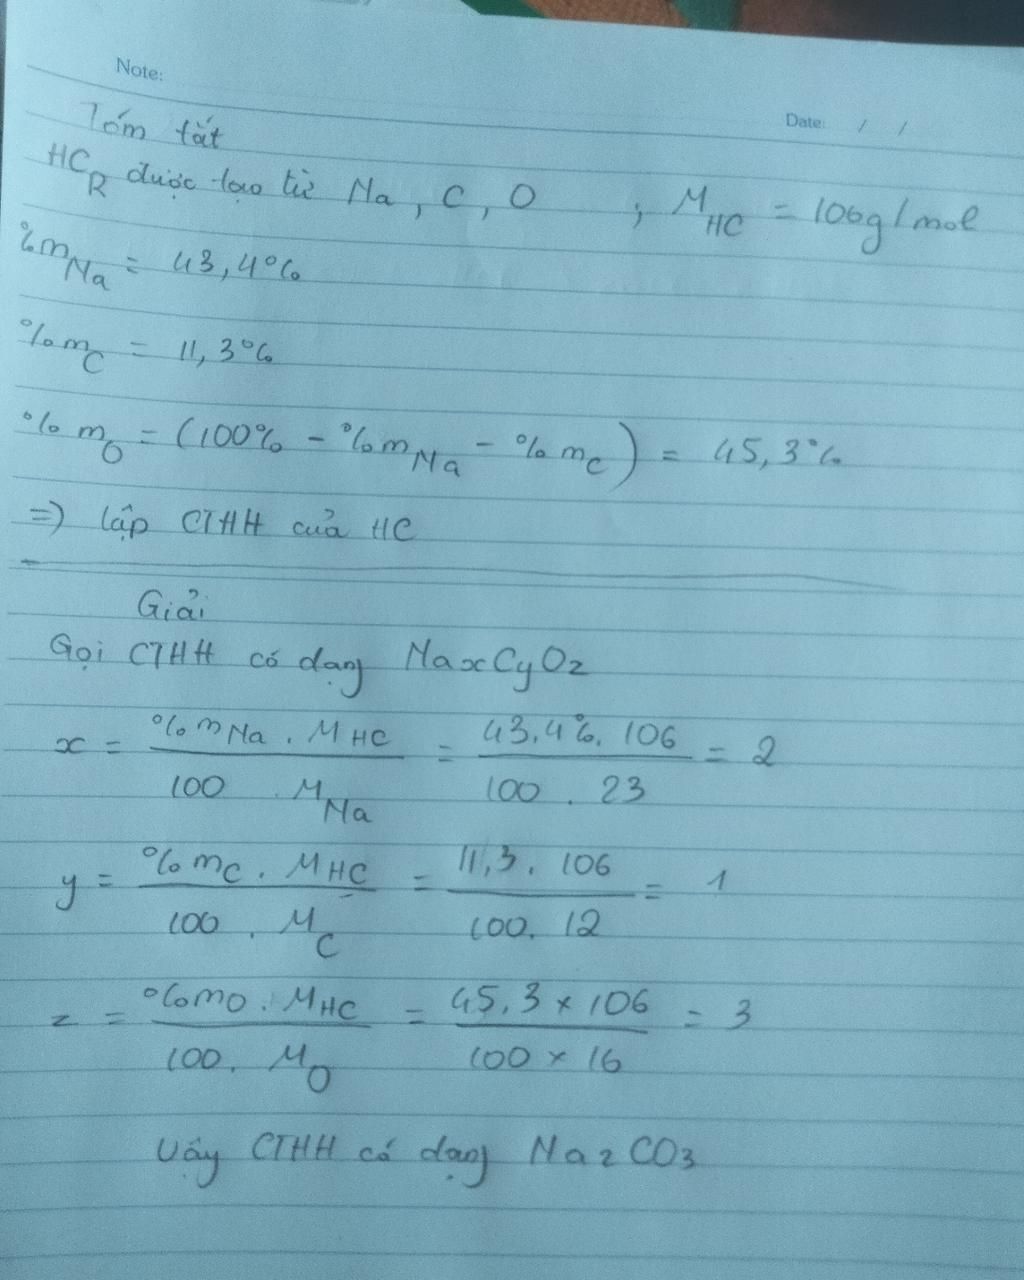 Note:
Date: / /
Tóm tắt
HC_R được tạo từ Na, C, O ; M_HC = 106g/mol
%m_Na = 43,4%
%m_C = 11,3%
%m_O = (100% - %m_Na - %m_C) = 45,3%
=> lập CTHH của HC
Giải
Gọi CTHH có dạng NaxCyOz
x = %m_Na . M_HC / 100 . M_Na = 43,4%. 106 / 100 . 23 = 2
y = %m_C . M_HC / 100 . M_C = 11,3. 106 / 100. 12 = 1
z = %mO . M_HC / 100. M_O = 45,3 x 106 / 100 x 16 = 3
Vậy CTHH có dạng Na2CO3